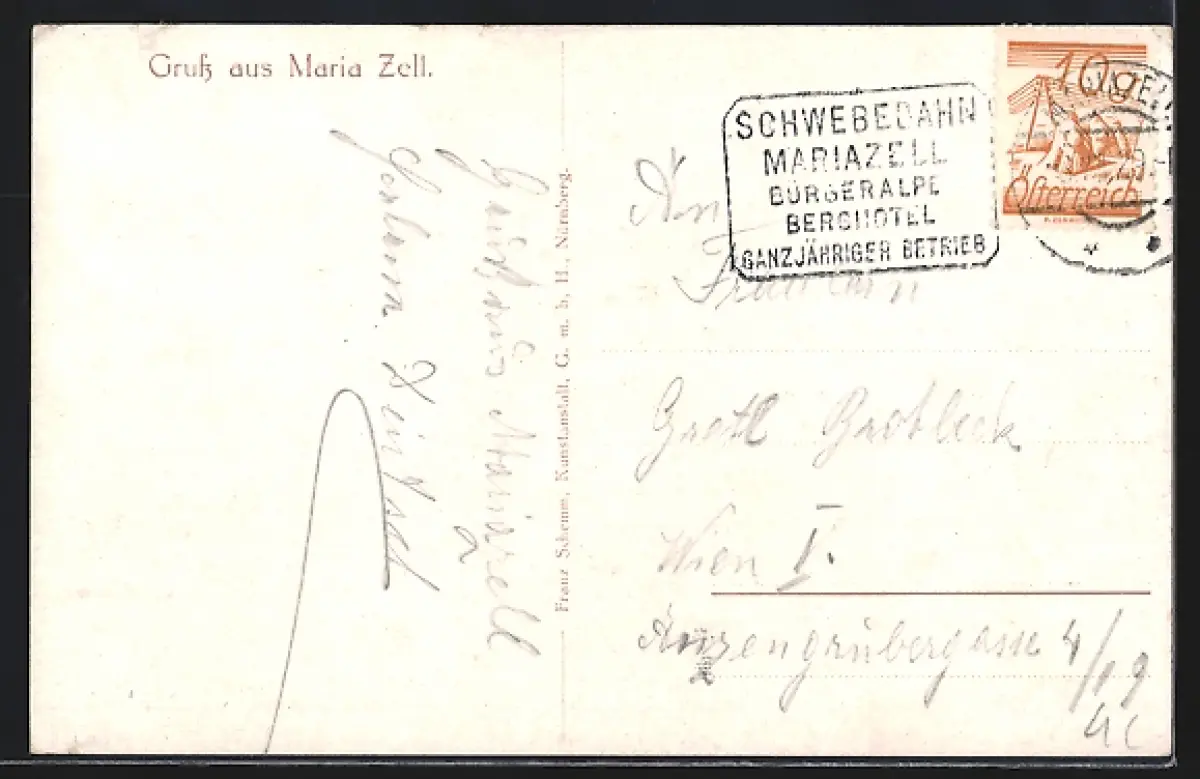 Gruß aus Maria Zell.
Gruß aus Mariazell
Franz Schemm, Kunstanstalt, G. m. b. H., Nürnberg.
SCHWEBEBAHN
MARIAZELL
BÜRGERALPE
BERGHOTEL
GANZJÄHRIGER BETRIEB
10g
Österreich
An
Fräulein
Gretl
Wien
Anzengrubergasse 4/19